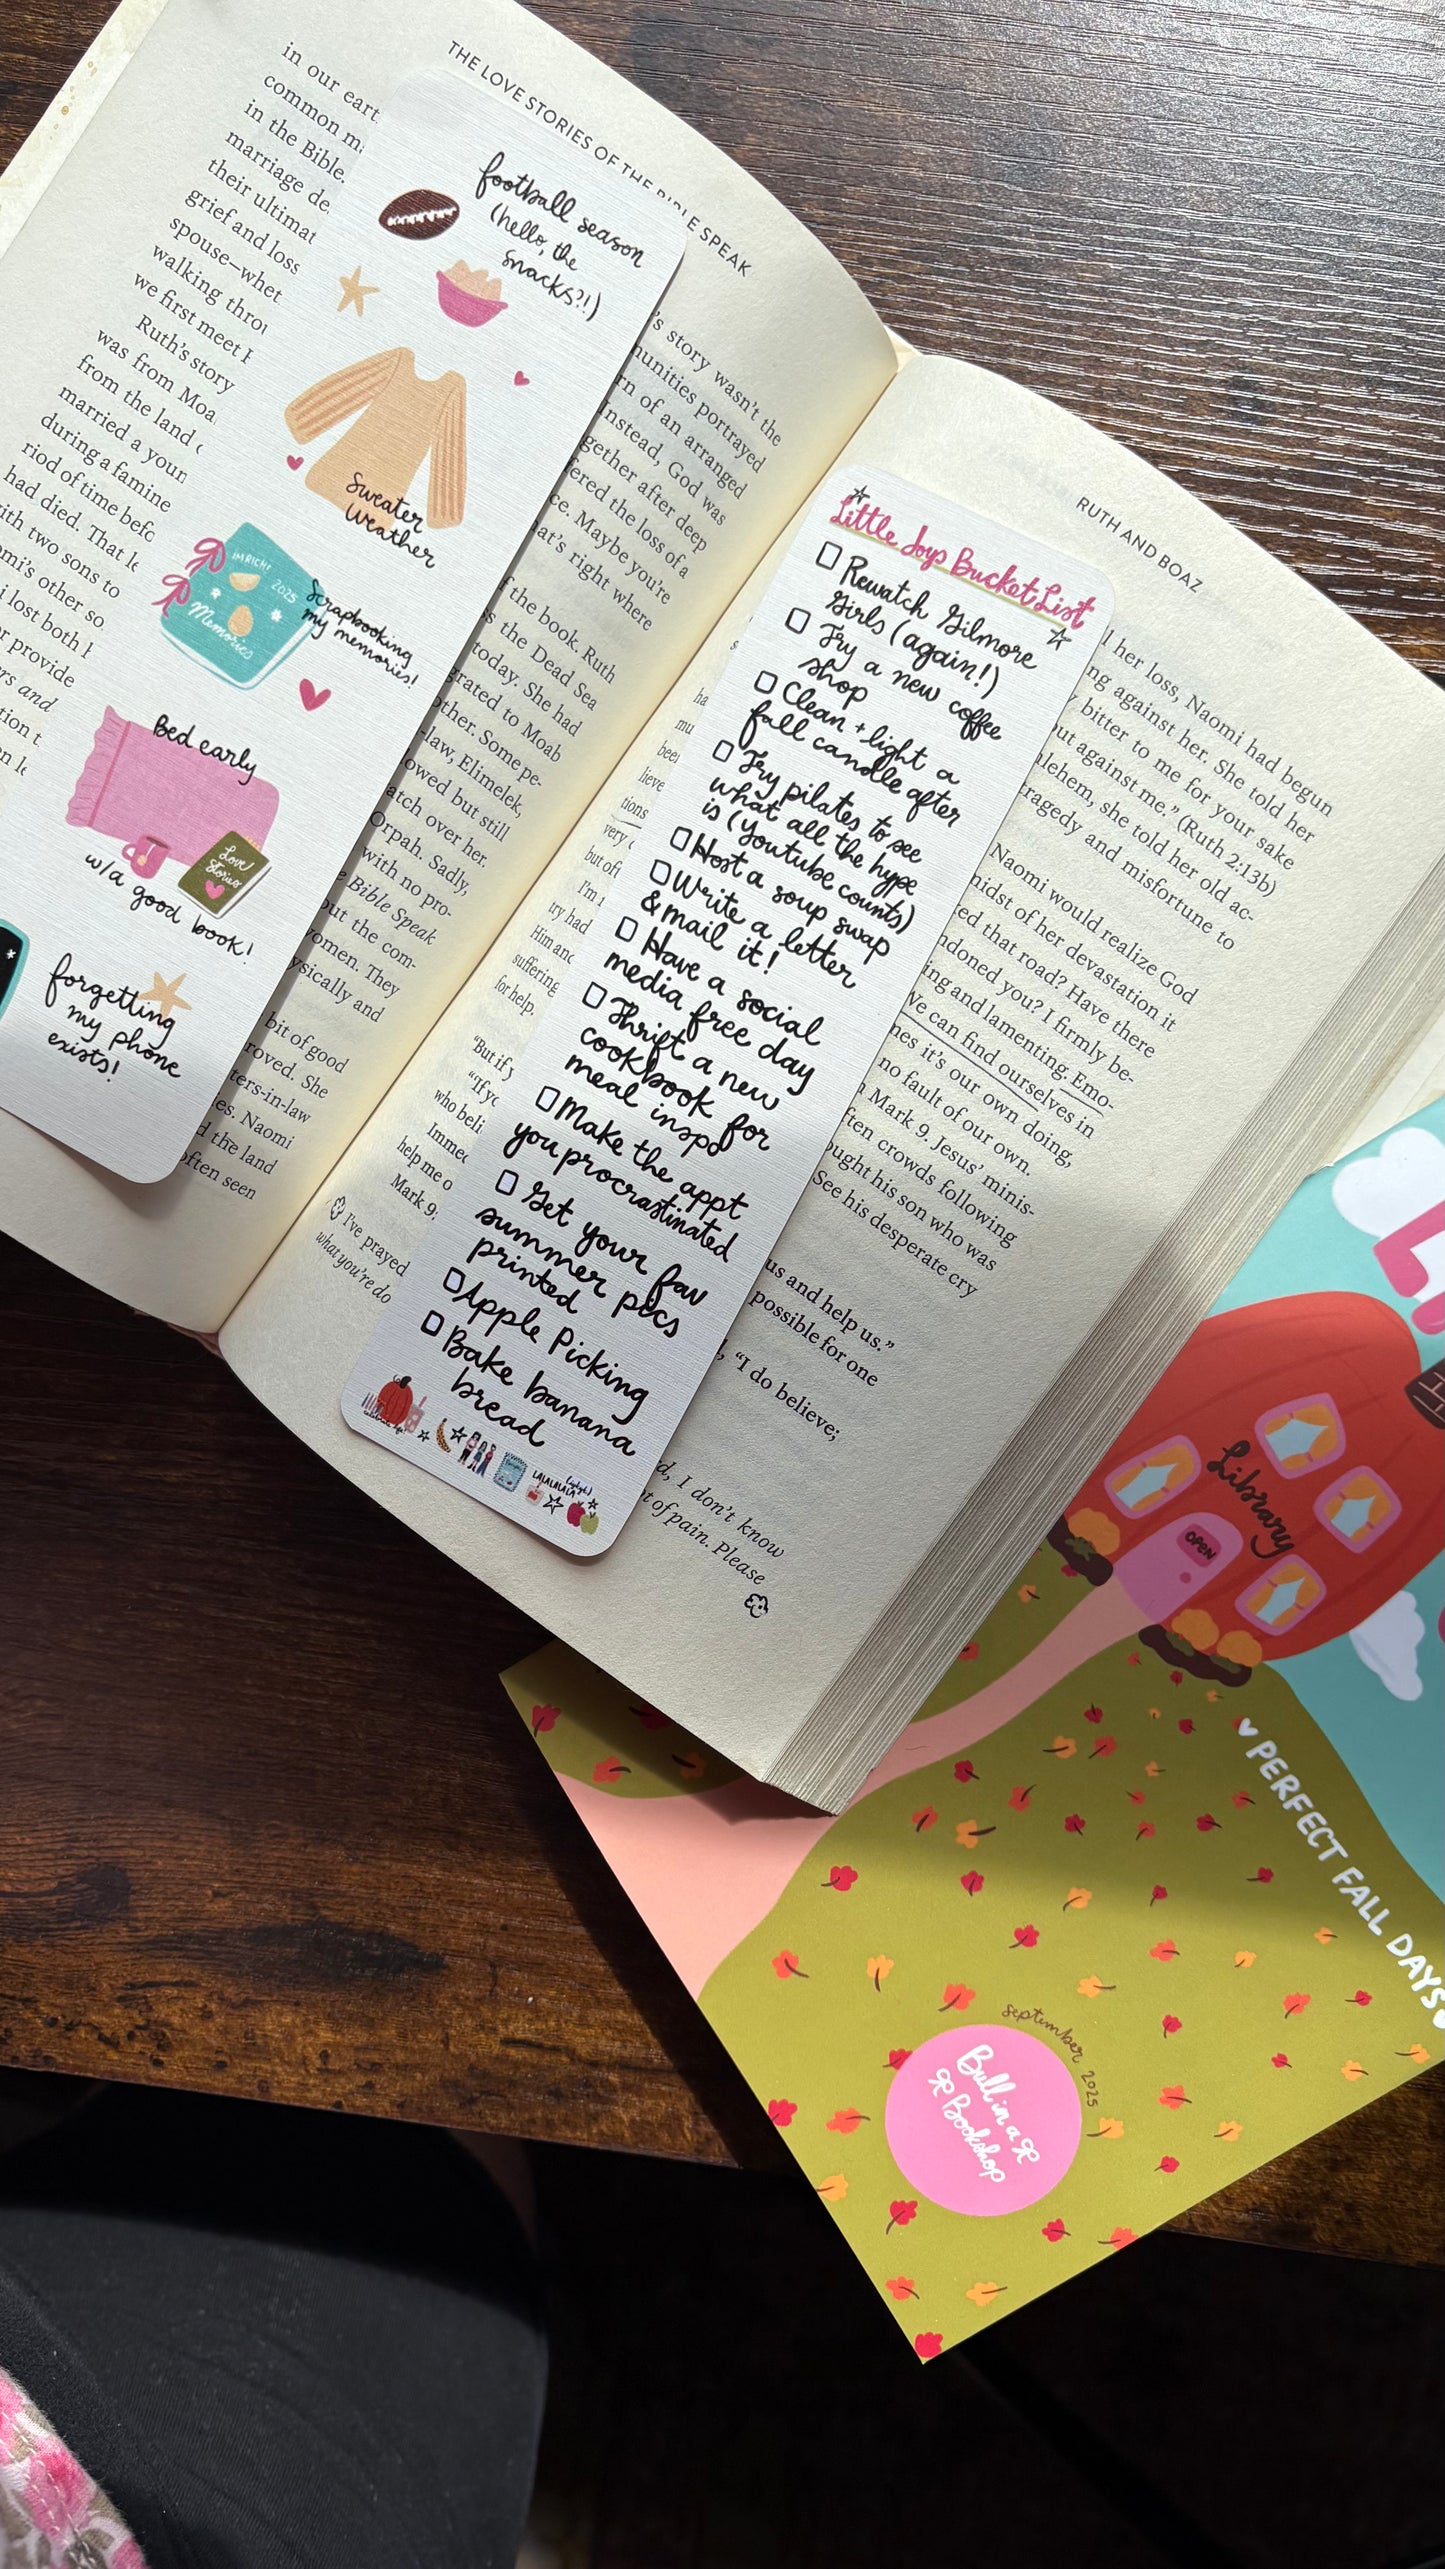 THE LOVE STORIES OF THE BIBLE SPEAK
in our eart
common m
in the Bible.
marriage de
their ultimat
grief and loss
spouse—whet
walking throu
we first meet
Ruth's story
was from Moa
from the land
married a youn
during a famine
riod of time befo
had died. That le
ith two sons to
omi's other so
lost both
or provide
rs and
tion
football season
(hello, the
snacks?!)
Sweater
Weather
IMRICHT 2025
Memories
Scrapbooking
my memories!
Bed early
Love
Stories
w/a good book!
forgetting
my phone
exists!
's story wasn't the
munities portrayed
rn of an arranged
Instead, God was
gether after deep
fered the loss of a
ce. Maybe you're
hat's right where
f the book. Ruth
s the Dead Sea
today. She had
grated to Moab
other. Some pe-
-law, Elimelek,
owed but still
atch over her.
Orpah. Sadly,
with no pro-
e Bible Speak
out the com-
women. They
ysically and
bit of good
roved. She
ters-in-law
es. Naomi
d the land
often seen
RUTH AND BOAZ
Little Joys Bucket List
Rewatch Gilmore
Girls (again!)
Try a new coffee
shop
Clean + light a
fall candle after
Try pilates to see
what all the hype
is (Youtube counts)
Host a soup swap
Write a letter
& mail it!
Have a social
media free day
Thrift a new
cookbook for
meal inspo
Make the appt
you procrastinated
Get your fav
summer pics
printed
Apple Picking
Bake banana
bread
LALALALALA
ha
mu
been
lieve
tions
very
but oft
I'm
try had
Him and
suffering
for help.
"But if y
"If yo
who beli
Immed
help me o
Mark 9:
I've prayed
what you're do
l her loss, Naomi had begun
ng against her. She told her
y bitter to me for your sake
out against me." (Ruth 2:13b)
hlehem, she told her old ac-
tragedy and misfortune to
Naomi would realize God
midst of her devastation it
ed that road? Have there
ndoned you? I firmly be-
ing and lamenting. Emo-
We can find ourselves in
nes it's our own doing,
no fault of our own.
n Mark 9. Jesus' minis-
ften crowds following
ought his son who was
See his desperate cry
us and help us."
possible for one
"I do believe;
rd, I don't know
t of pain. Please
Library
OPEN
PERFECT FALL DAYS
september 2025
Bull in a
Bookshop